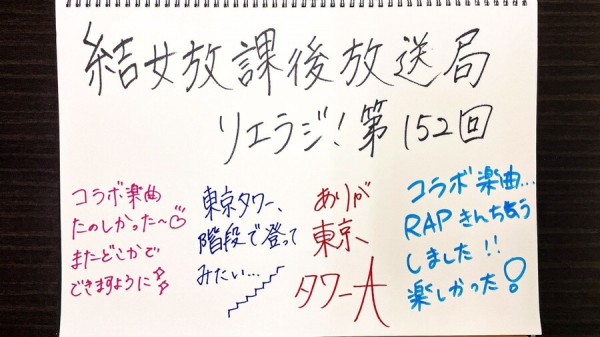 結女放課後放送局
リエラジ！第152回
コラボ楽曲
たのしかった〜♡
またどこかで
できますように
東京タワー、
階段で登って
みたい…
ありが
東京、
タワー
コラボ楽曲…
RAPきんちょう
しました!!
楽しかった!